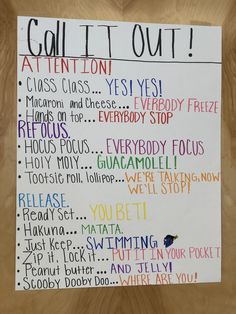 Call IT OUT!
ATTENTION!
• Class Class... YES! YES!
• Macaroni and Cheese... EVERYBODY FREEZE
• Hands on top... EVERYBODY STOP
REFOCUS.
• HOCUS POCUS... EVERYBODY FOCUS
• HOLY MOLY... GUACAMOLE!
• Tootsie roll, lollipop... WE'RE TALKING, NOW
WE'LL STOP!
RELEASE.
• Ready Set... YOU BET!
• Hakuna... MATATA.
• Just Keep... SWIMMING
• Zip it, Lock it... PUT IT IN YOUR POCKET
• Peanut butter... AND JELLY!
• Scooby Dooby Doo... WHERE ARE YOU!